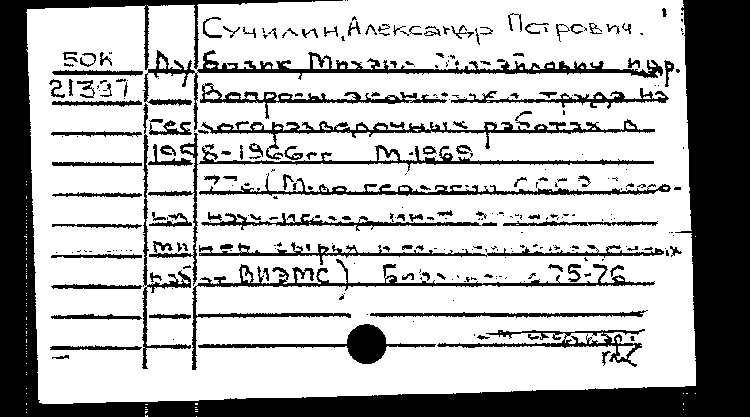 Сучилин, Александр Петрович.
БОК Ду Базик, Михаил Михайлович и др.
21397 Вопросы экономики труда на
геологоразведочных работах в
1958-1966гг М, 1969
77с. (М-во геологии СССР Всесо-
науч-исслед. ин-т эконом.
минер. сырья и геологоразведочных
работ ВИЭМС) Библиогр с 75-76